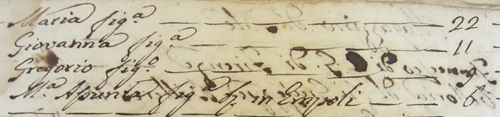 Maria fig.a 22
Giovanna fig.a 11
Gregorio fig.o 9
M.a Assunta fig.a in Empoli 6